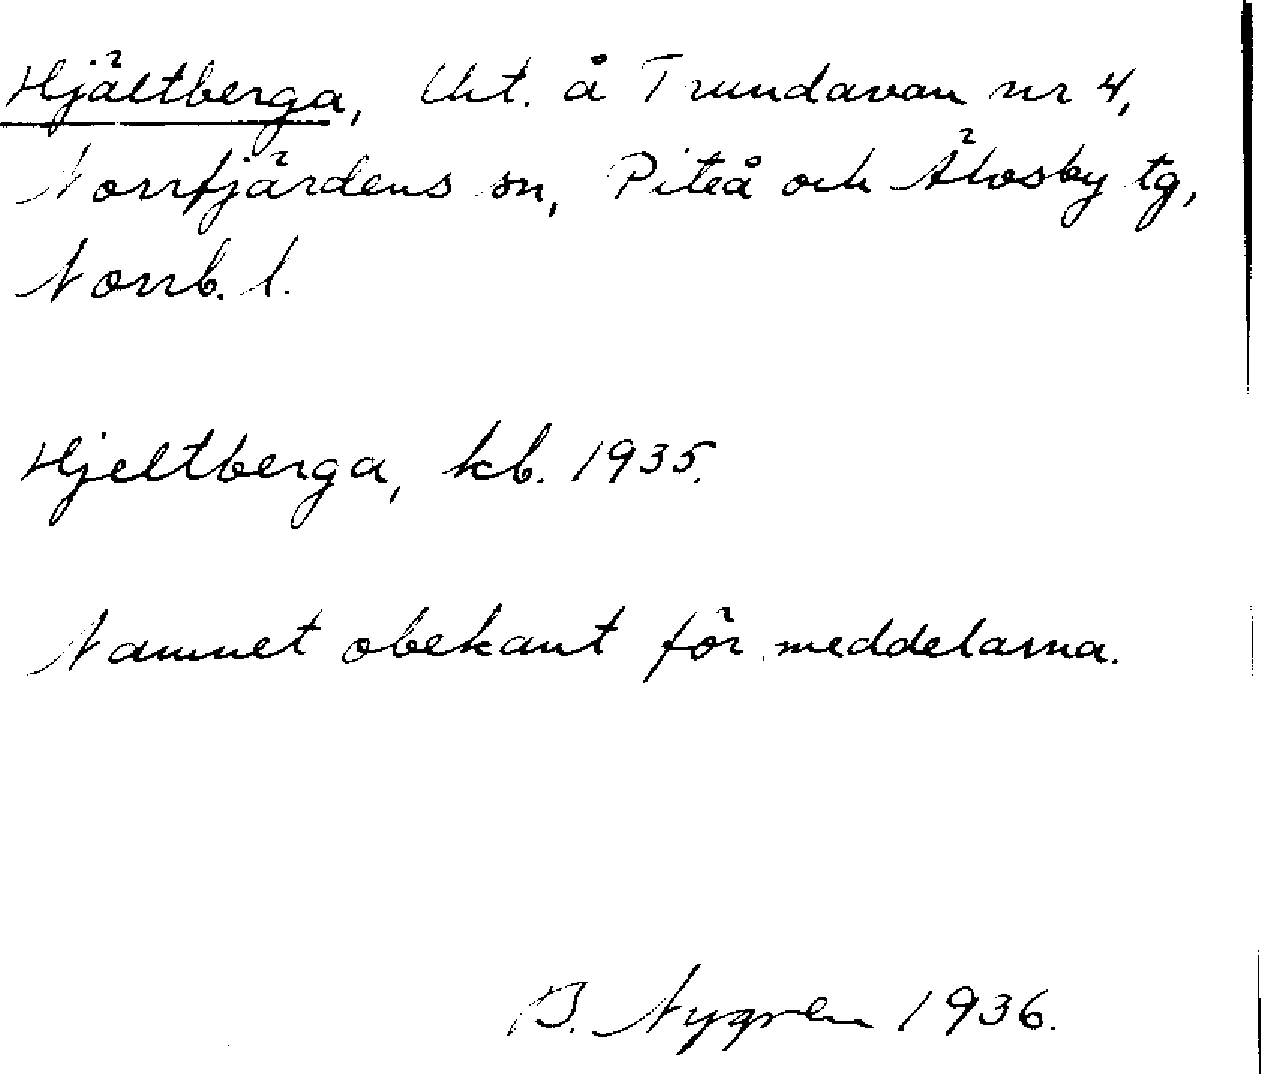 Hjältberga, Uht. å Trundavan nr 4,
Norrfjärdens sn, Piteå och Älvsby tg,
Norrb. l.
Hjeltberga, kb. 1935.
Namnet obekant för meddelarna.
B. Nygren 1936.